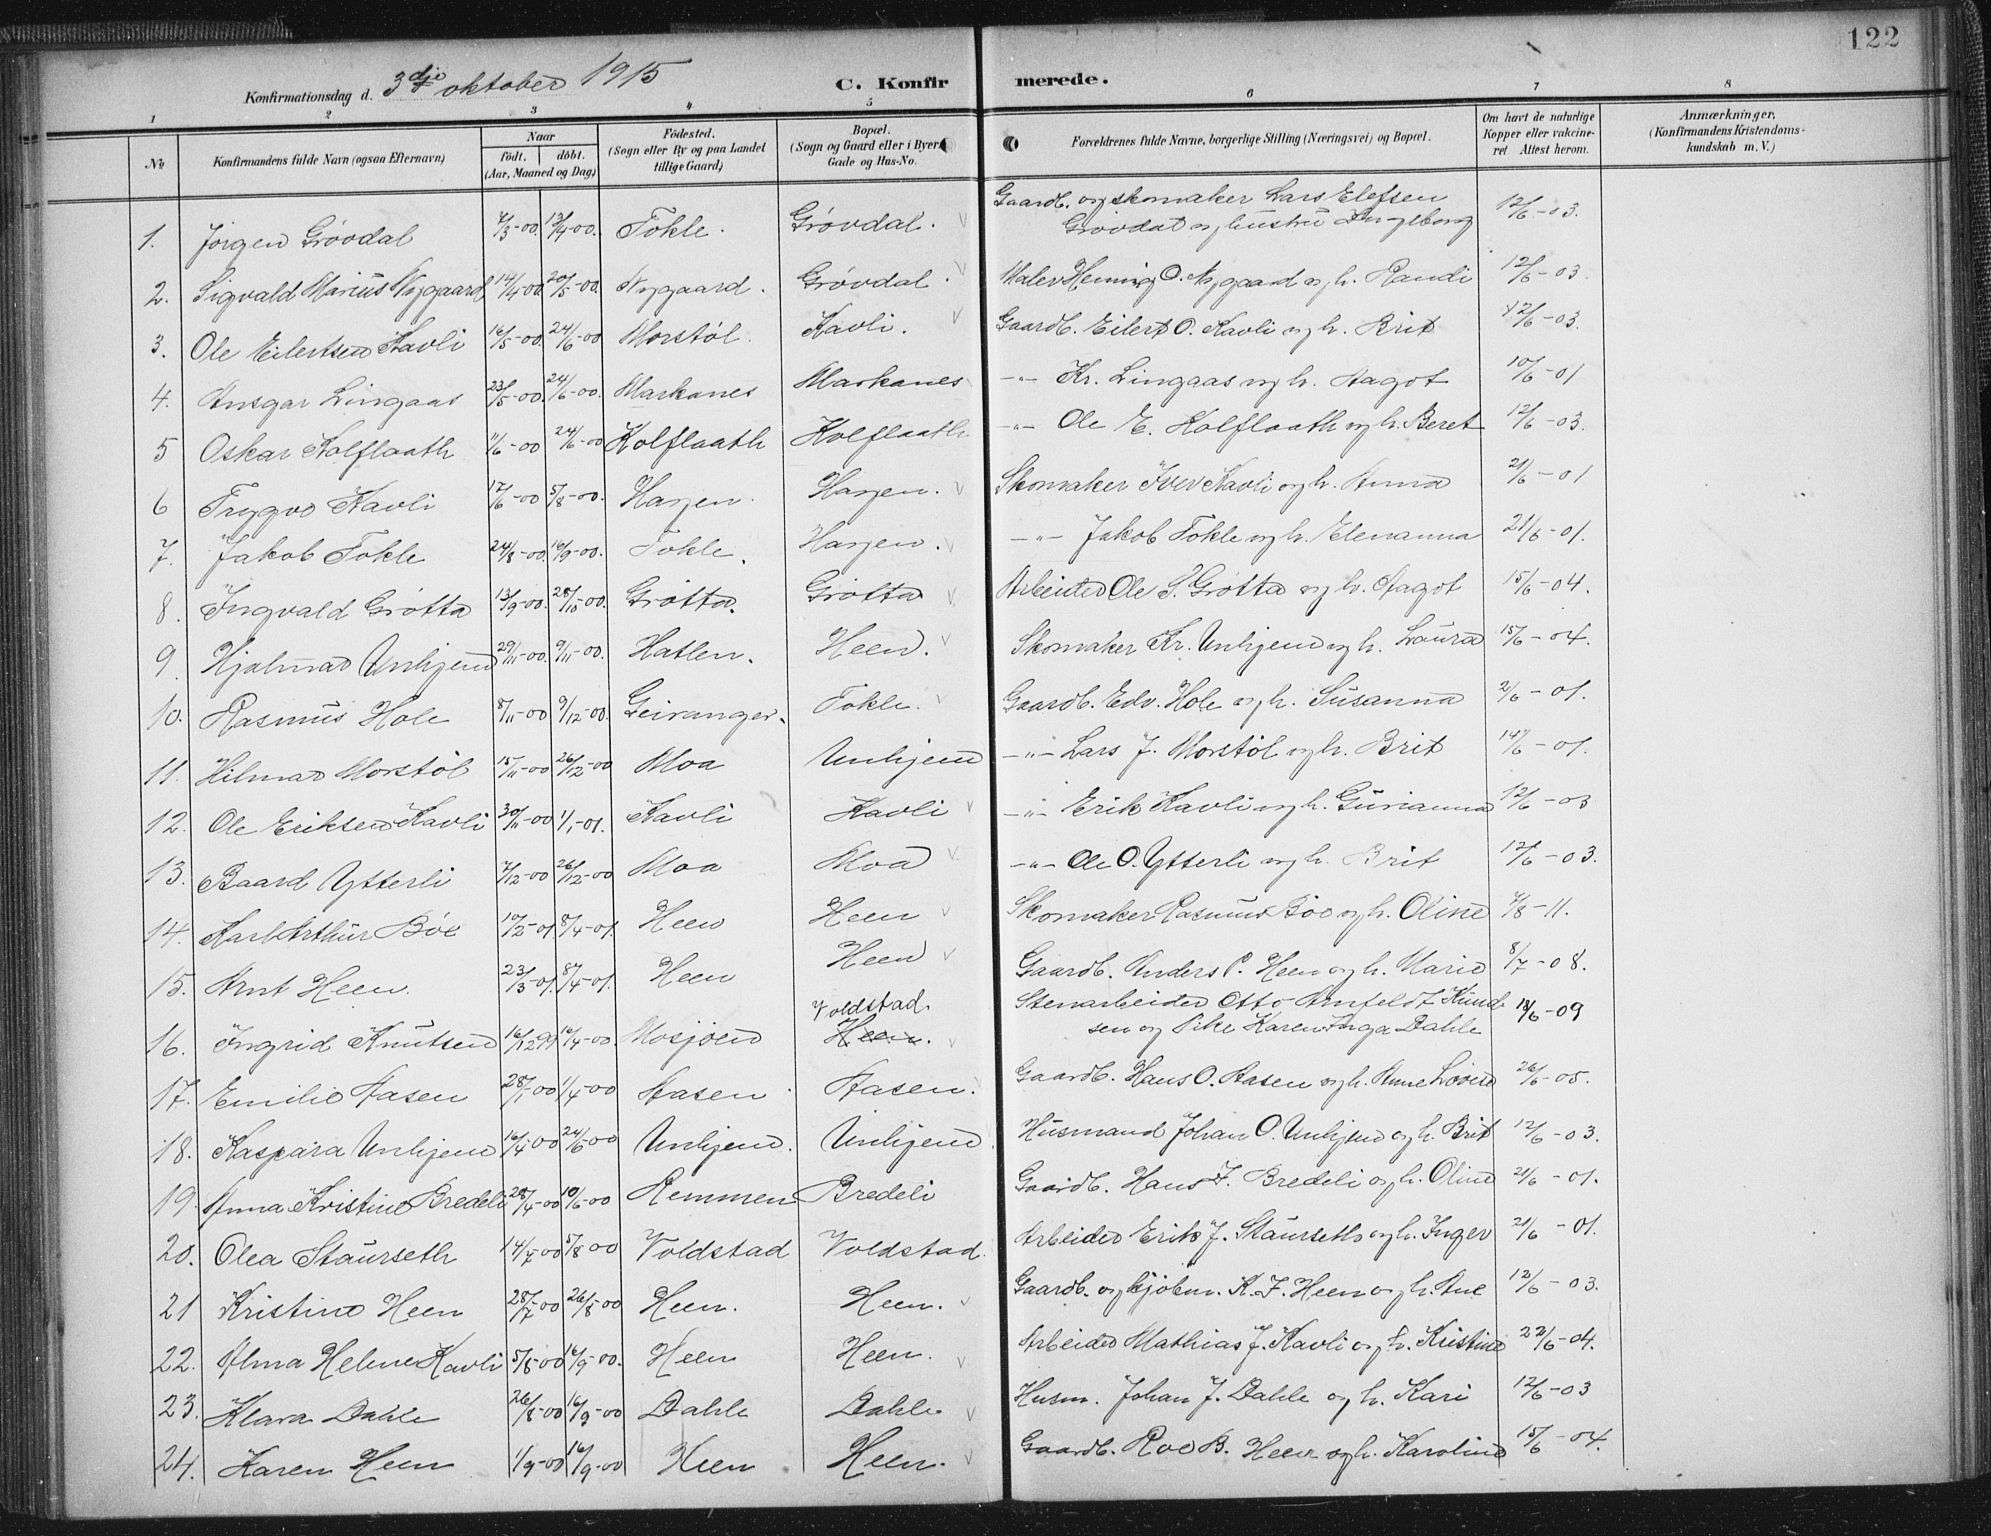 122
Konfirmationsdag d. 3dje oktober 1915 C. Konfirmerede.
1 2 3 4 5 6 7 8
No Konfirmandens fulde Navn (ogsaa Efternavn) Naar født. døbt. (Aar, Maaned og Dag) Fødested. (Sogn eller By og paa Landet tillige Gaard) Bopæl. (Sogn og Gaard eller i Byer Gade og Hus-No. Forældrenes fulde Navne, borgerlige Stilling (Næringsvei) og Bopæl. Om havt de naturlige Kopper eller vakcineret. Attest herom. Anmærkninger, (Konfirmandens Kristendomskundskab m. V.)
1. Jørgen Grøvdal 7/3-00. 13/4-00. Tokle. Grøvdal. Gaardb. og skomaker Lars Elefsen Grøvdal og hustru Ingeborg 12/6-03.
2. Sigvald Marius Nygaard 14/4-00 20/5-00. Nygaard. Grøvdal. Maler Henning O. Nygaard og h. Randi 12/6-03.
3. Ole Eilertsen Kavli 16/5-00. 24/6-00 Morstøl. Kavli. Gaardb. Eilert O. Kavli og h. Brit 12/6-03.
4. Ansgar Lingaas 23/5-00. 24/6-00. Markanes Markanes -"- Kr. Lingaas og h. Aagot 10/6-01
5 Oskar Kolflaath 11/6-00 24/6-00 Kolflaath Kolflaath -"- Ole E. Kolflaath og h. Beret 12/6-03.
6 Trygve Kavli 17/6-00 5/8-00. Hasjen. Hasjen. Skomaker Iver Kavli og h. Anna 21/6-01
7. Jakob Tokle 24/8-00. 16/9-00. Tokle. Hasjen. -"- Jakob Tokle og h. Elenanna 21/6-01.
8. Ingvald Grøtta 13/9-00. 28/10-00. Grøtta. Grøtta Arbeider Ole S. Grøtta og h. Aagot 15/6-04.
9. Hjalmar Unhjem 29/11-00. 9/11-00. Hatlen. Heen. Skomaker Kr. Unhjem og h. Laura 15/6-04.
10. Rasmus Hole 8/11-00 9/12-00. Geiranger. Tokle. Gaardb. Edv. Hole og h. Susanna 21/6-01.
11. Hilmar Morstøl 15/11-00 26/12-00 Moa Unhjem -"- Lars J. Morstøl og h. Brit 14/6-01.
12. Ole Eriksen Kavli 30/11-00 1/1-01. Kavli Kavli -"- Erik Kavli og h. Gurianna 12/6-03
13. Baard Ytterli 7/12-00 26/12-00 Moa Moa -"- Ole O. Ytterli og h. Brit 12/6-03.
14. Karl Arthur Bøe 10/2-01. 8/4-01. Heen Heen Skomaker Rasmus Bøe og h. Oline 4/8-11.
15. Arnt Heen. 23/3-01. 8/4-01. Heen Heen Gaardb. Anders P. Heen og h. Marie 8/7-08.
16. Ingrid Knutsen 16/12 99 16/4-00. Mosjøen Voldstad Heen. Stenarbeider Otto Arnfeldt Kundsen og Pike Karen Inga Dahle 18/6-09
17. Emilie Aasen 28/1-00 1/4-00 Aasen Aasen. Gaardb. Hans O. Aasen og h. Anne Lovise 26/6-05.
18. Kaspara Unhjem 16/4-00 24/6-00 Unhjem. Unhjem. Husmand Johan O. Unhjem og h. Brit 12/6-03.
19. Anna Kristine Bredeli 28/4-00 10/6-00 Remmen Bredeli Gaardb. Hans J. Bredeli og h. Oline 21/6-01.
20. Olea Staurseth 14/7-00 5/8 00 Voldstad Voldstad. Arbeider Erik J. Staurseth og h. Inger 21/6-01.
21 Kristine Heen 28/7-00 26/8-00 Heen. Heen. Gaardb. og kjøbm. K. J. Heen og h. Ane 12/6-03.
22. Alma Helene Kavli 5/8-00 16/9-00. Heen Heen. Arbeider Mathias J. Kavli og h. Kristine 22/6-04.
23. Klara Dahle 26/8-00 16/9-00 Dahle Dahle Husm. Johan J. Dahle og h. Kari 12/6-03
24. Karen Heen 1/9-00 16/9-00 Heen Heen. Gaardb. Roe B. Heen og h. Karoline 15/6-04.